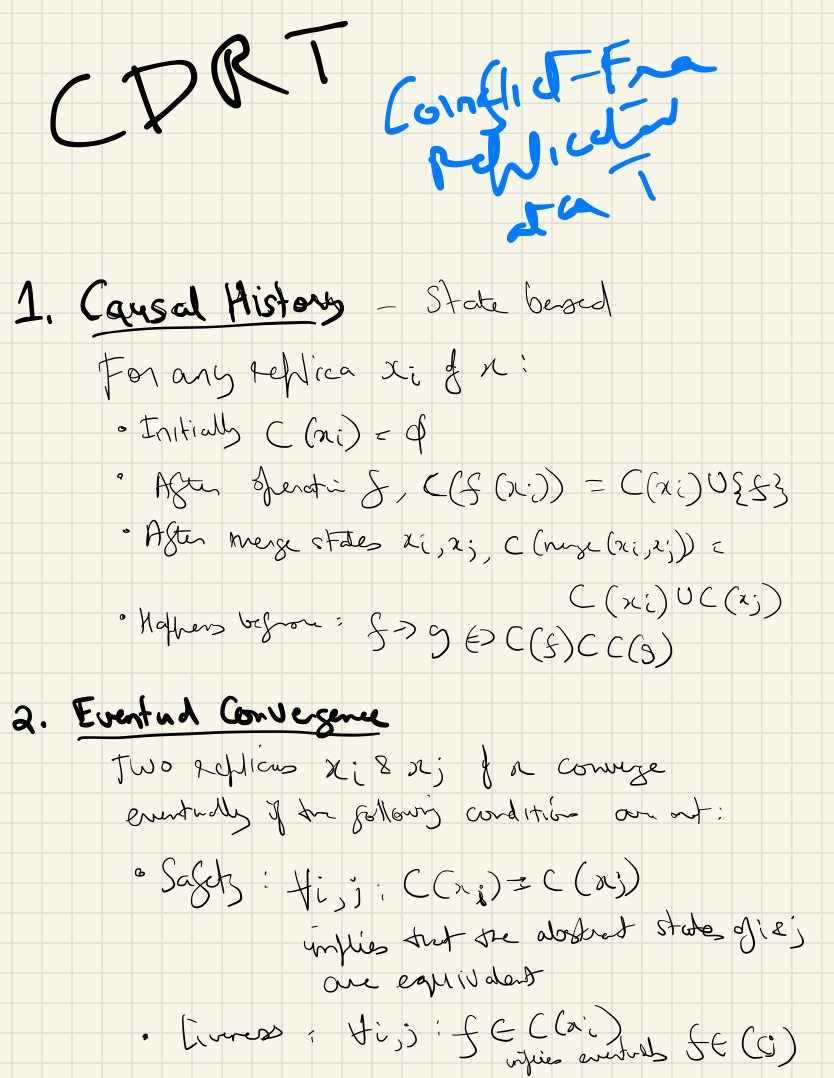 CDRT
Conflict-Free
Replicated
data T
1. Causal History - State based
For any replica xi of x:
• Initially C(xi) = ϕ
• After operation f, C(f(xi)) = C(xi)∪{f}
• After merge states xi, xj, C(merge(xi,xj)) =
C(xi)∪C(xj)
• Happens before: f → g ⇔ C(f)⊂C(g)
2. Eventual Convergence
Two replicas xi & xj of x converge
eventually if the following conditions are met:
• Safety: ∀i,j: C(xi) = C(xj)
implies that the abstract states of i & j
are equivalent
• Liveness: ∀i,j: f ∈ C(xi)
implies eventually f ∈ (Cj)